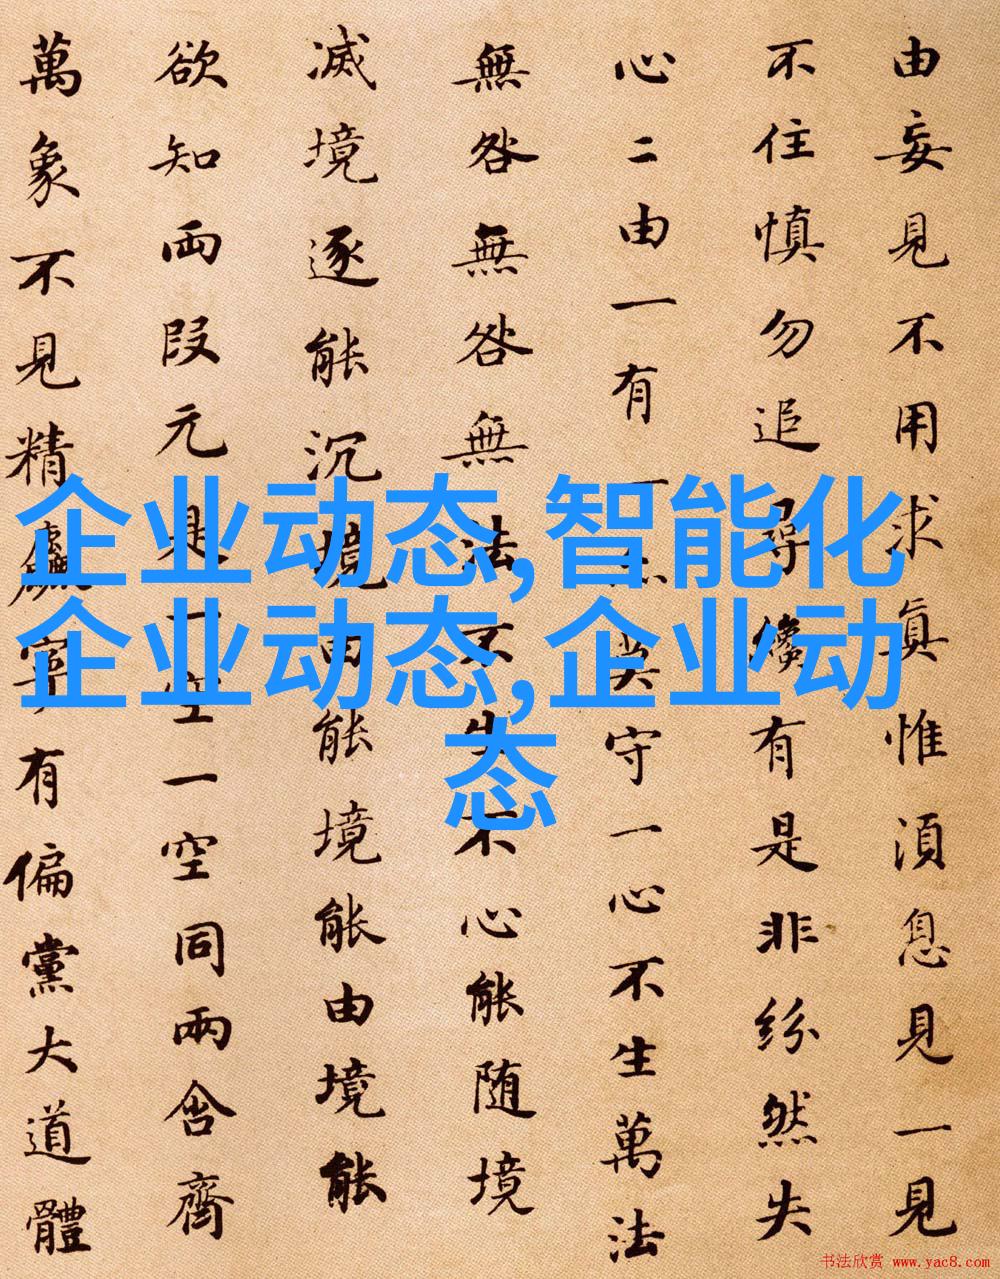 由妄見不用求眞惟湏息見一見
不住慎勿追尋纔有是非紛然失
心二由一有一亦莫守一心不生萬法
無咎無咎無法不生不心能随境
滅境逐能沉境由能境能由境能
欲知兩段元是一空一空同兩含齊
萬象不見精麤寧有偏黨大道體
企业动态,智能化
企业动态,企业动
态
书法欣赏 www.yac8.com